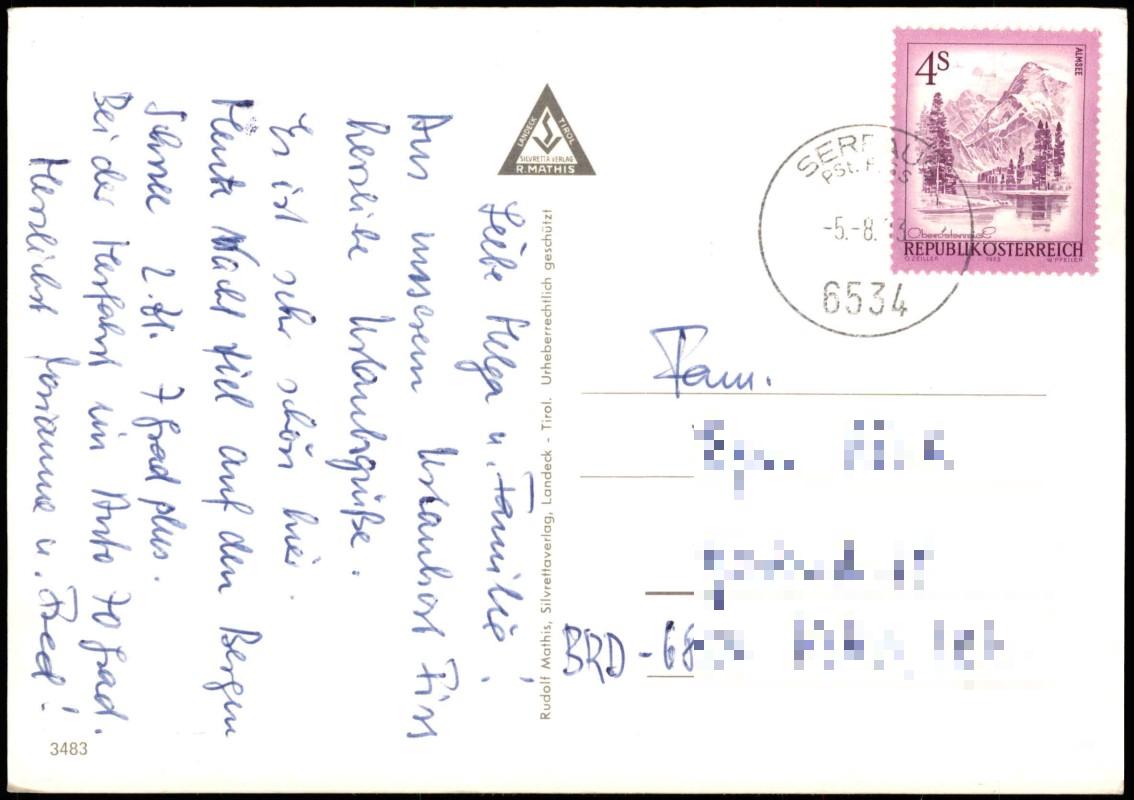 Liebe Helga u. Familie!
Aus unserem Urlaubsort Fiss
herzliche Urlaubsgrüße.
Es ist sehr schön hier.
Heute Nacht fiel auf den Bergen
Schnee 2.8. 7 Grad plus.
Bei der Herfahrt im Auto 70 Grad.
Herzlichst Marianne u. Fred!
3483
LANDECK TIROL
SILVRETTA VERLAG
R. MATHIS
Rudolf Mathis, Silvrettaverlag, Landeck - Tirol. Urheberrechtlich geschützt
4S
ALMSEE
Oberösterreich
REPUBLIK ÖSTERREICH
O. ZEILLER 1973 W. PFEILER
-5.-8.
6534
Fam.
BRD - 68